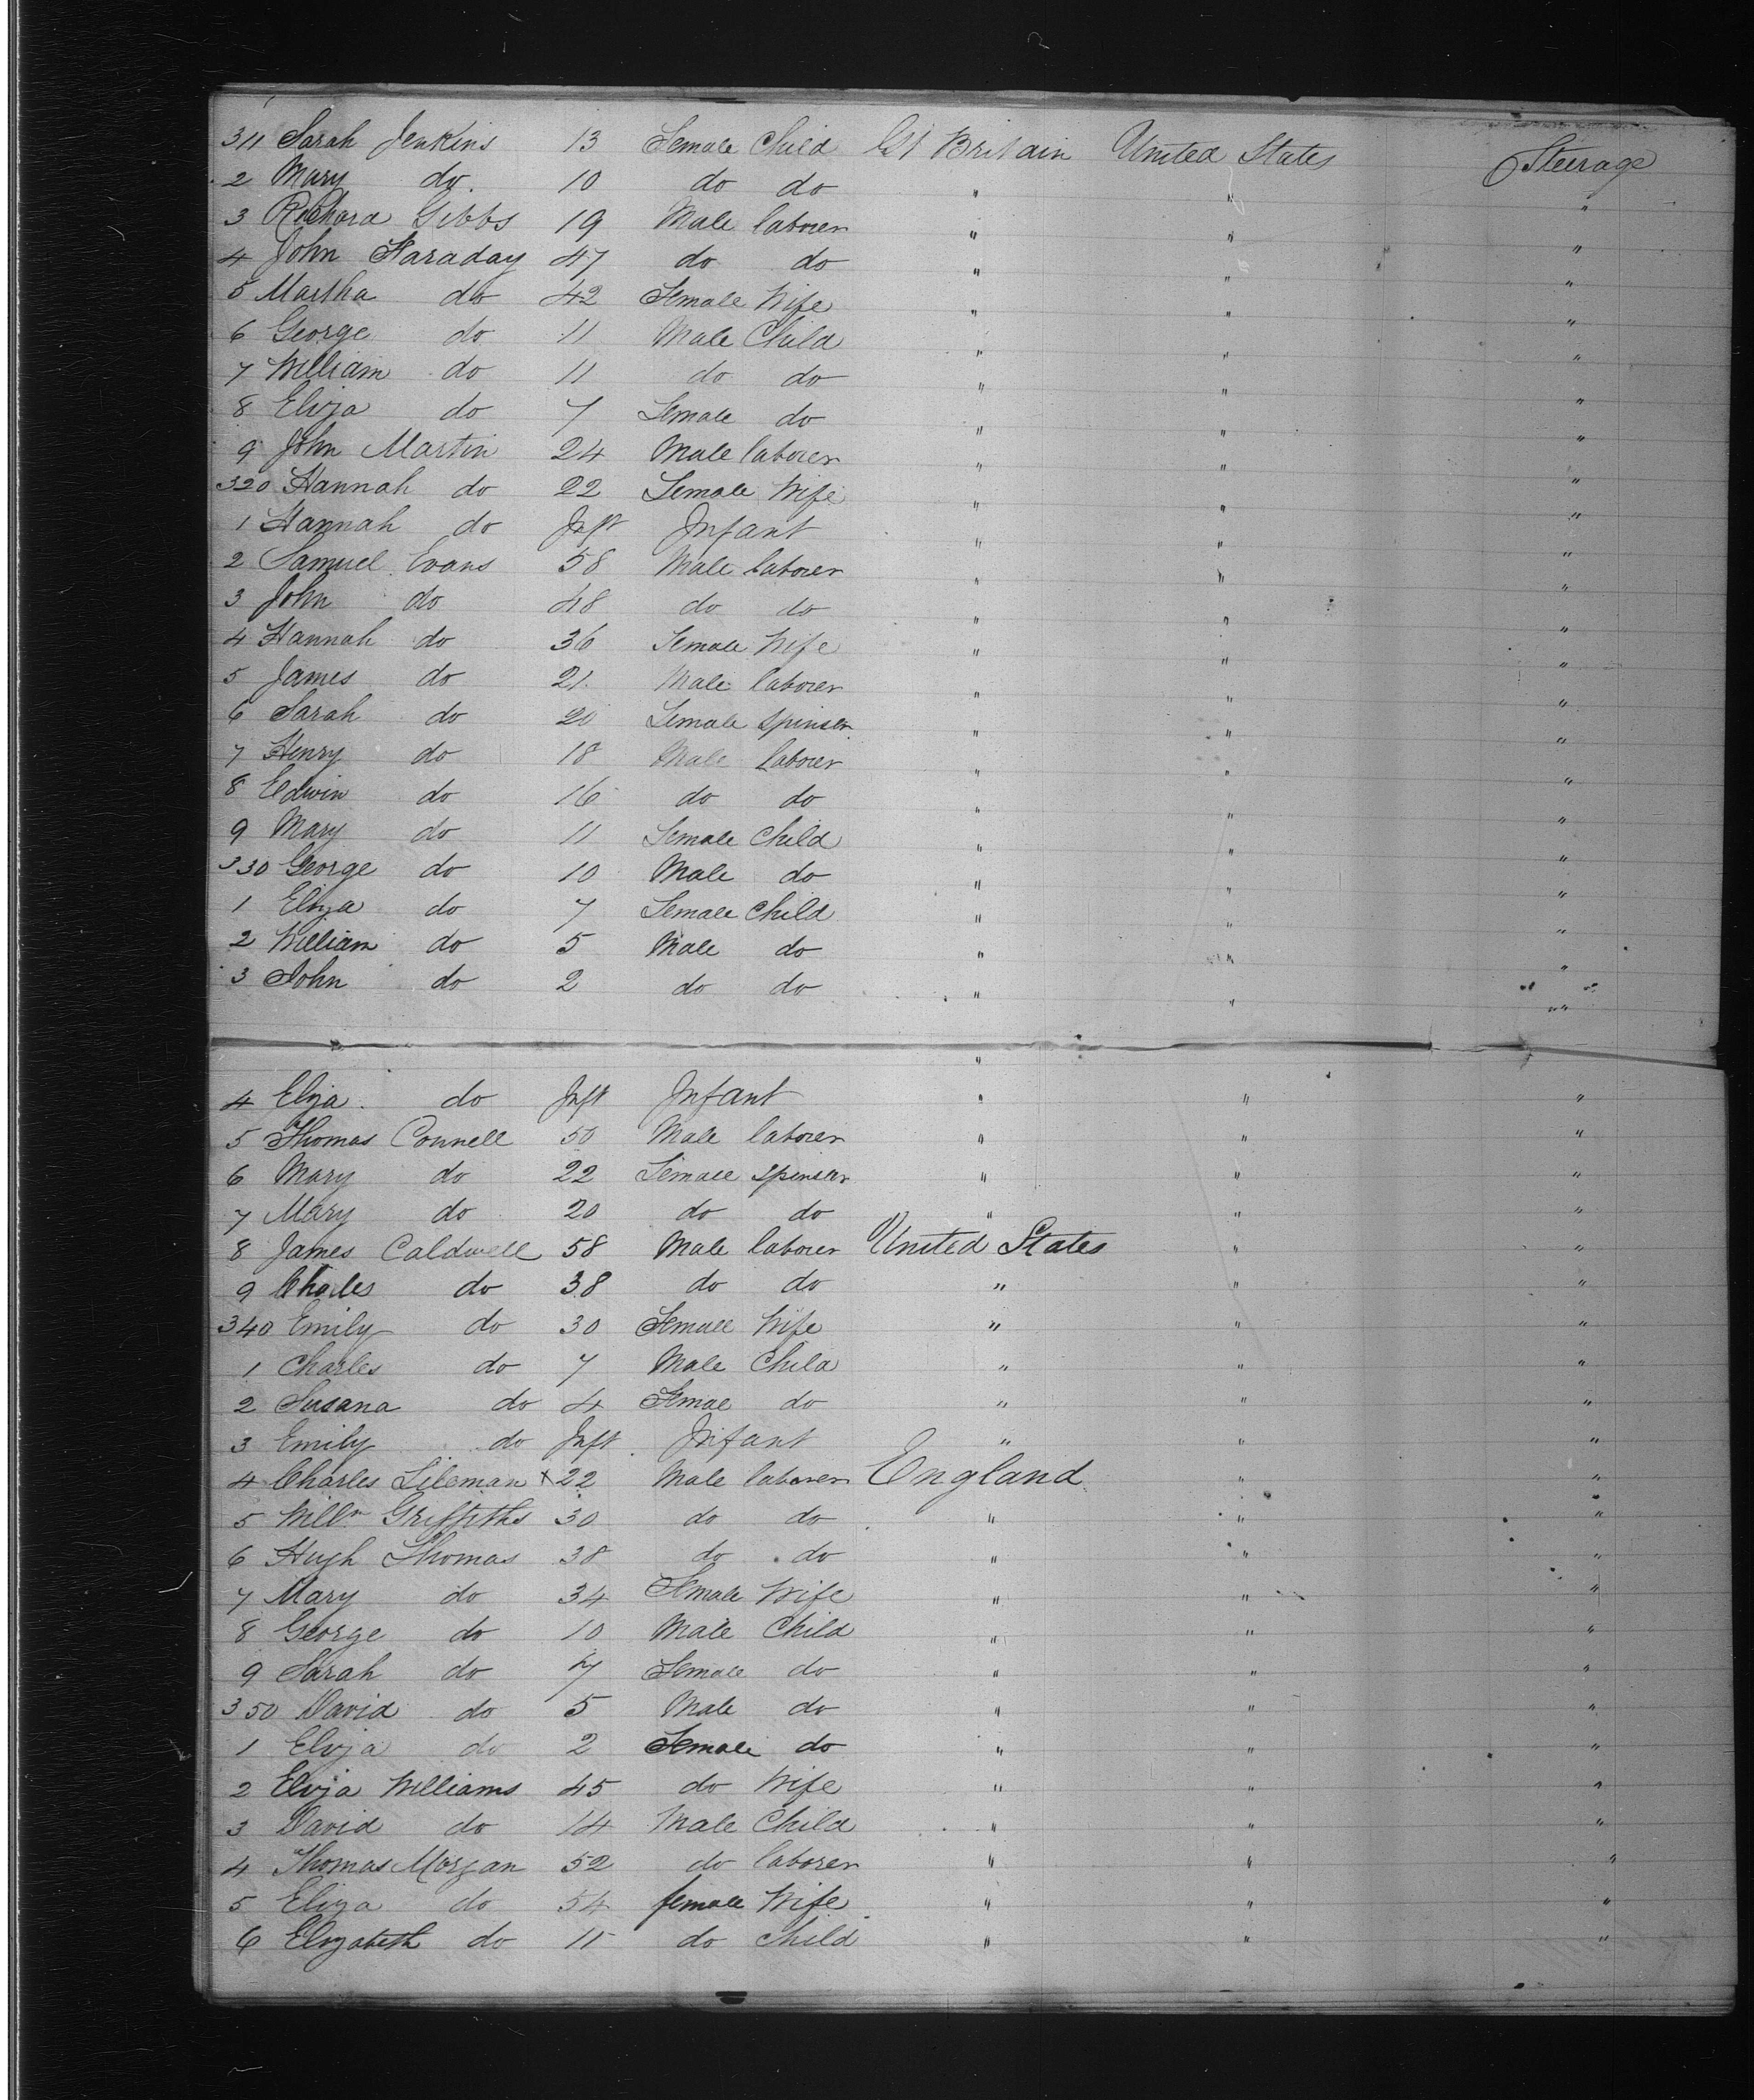 311 Sarah Jenkins 13 Female Child Gt Britain United States Steerage
2 Mary do. 10 do do " " "
3 Richard Gibbs 19 Male laborer " " "
4 John Faraday 47 do do " " "
5 Martha do 42 Female Wife " " "
6 George do 11 Male Child " " "
7 William do 11 do do " " "
8 Eliza do 7 Female do " " "
9 John Martin 24 Male laborer " " "
320 Hannah do 22 Female Wife " " "
1 Hannah do Inft Infant " " "
2 Samuel Evans 58 Male laborer " " "
3 John do 48 do do " " "
4 Hannah do 36 Female Wife " " "
5 James do 21 Male laborer " " "
6 Sarah do 20 Female Spinser " " "
7 Henry do 18 Male laborer " " "
8 Edwin do 16 do do " " "
9 Mary do 11 Female Child " " "
330 George do 10 Male do " " "
1 Eliza do 7 Female Child " " "
2 William do 5 Male do " " "
3 John do 2 do do " " "
4 Eliza do Inft Infant " " "
5 Thomas Connell 50 Male laborer " " "
6 Mary do 22 Female Spinser " " "
7 Mary do 20 do do " " "
8 James Caldwell 58 Male laborer United States " "
9 Charles do 38 do do " " "
340 Emily do 30 Female Wife " " "
1 Charles do 7 Male Child " " "
2 Susana do 4 Femae do " " "
3 Emily do Inft Infant " " "
4 Charles Lileman x 22 Male laborer England " "
5 Willm Griffiths 30 do do " " "
6 Hugh Thomas 38 do do " " "
7 Mary do 34 Female Wife " " "
8 George do 10 Male Child " " "
9 Sarah do 7 Female do " " "
350 David do 5 Male do " " "
1 Eliza do 2 Female do " " "
2 Eliza Williams 45 do Wife " " "
3 David do 14 Male Child " " "
4 Thomas Morgan 52 do laborer " " "
5 Eliza do 54 female Wife " " "
6 Elizabeth do 11 do Child " " "